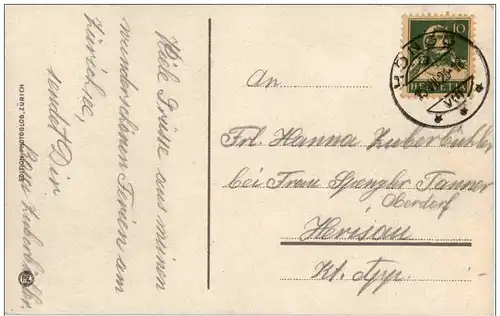 Viele Grüsse aus meinen
wunderschönen Ferien am
Zürichsee,
sendet Dir
Zuberbühler.
10
HELVETIA
HÖNGG
An
Frl. Hanna Zuberbühler
bei Frau Spengler Tanner
Oberdorf
Herisau
Kt. App.